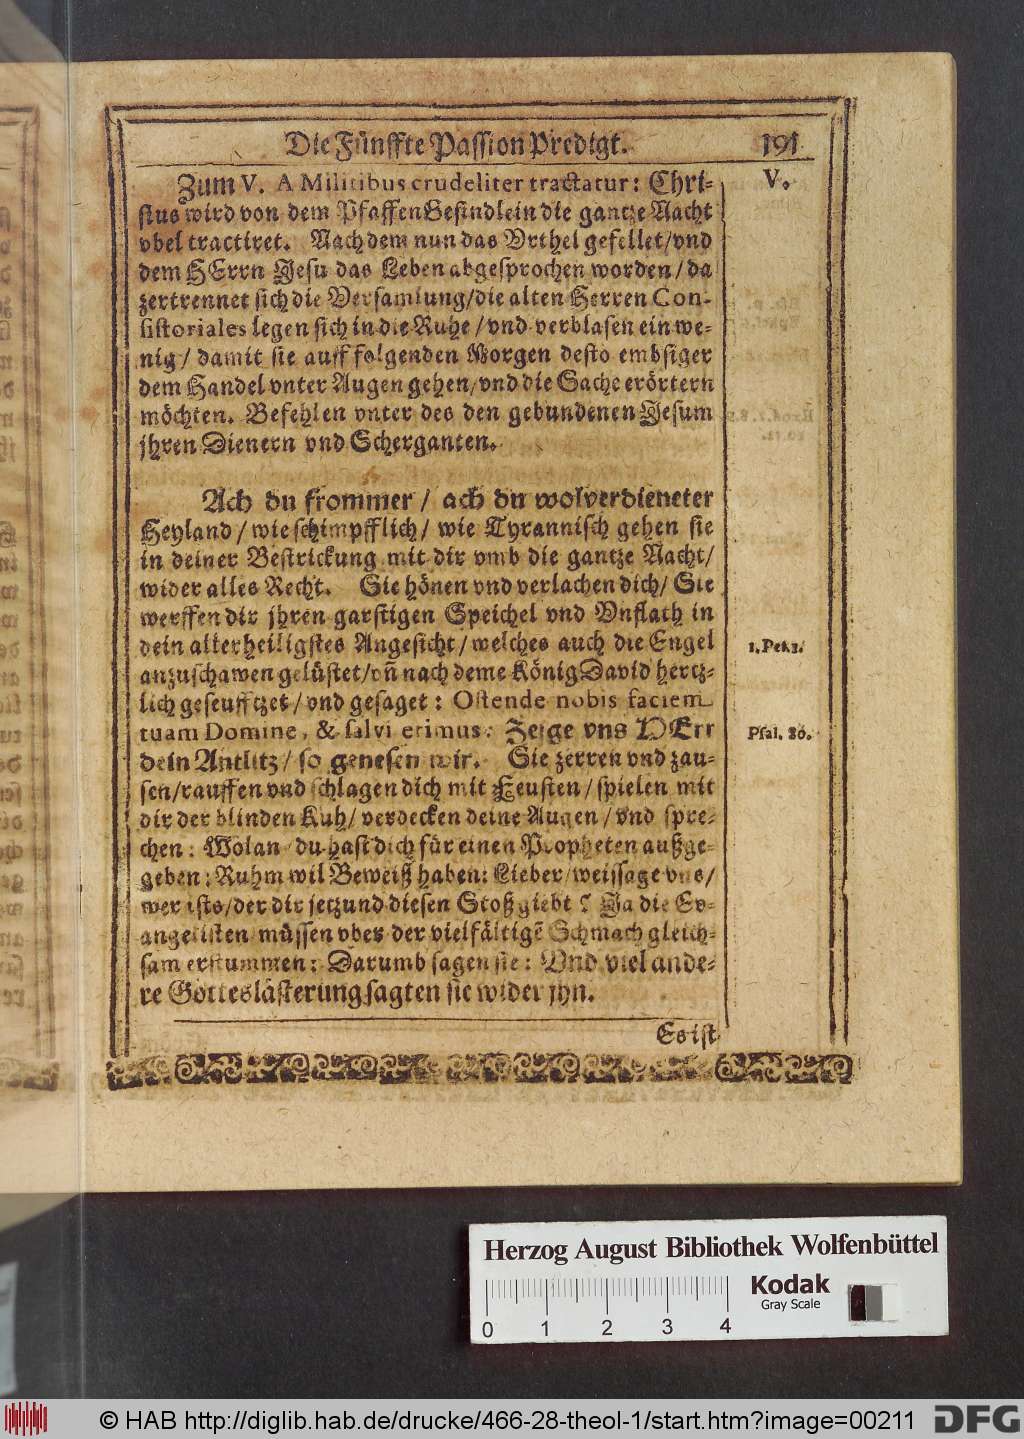 Die Fünffte Passion Predigt. 191
Zum V. A Militibus crudeliter tractatur: Chri- V.
stus wird von dem PfaffenGesindlein die gantze Nacht
vbel tractiret. Nach dem nun das Vrthel gefellet/vnd
dem HErrn Jesu das Leben abgesprochen worden/da
zertrennet sich die Versamlung/die alten Herren Con-
sistoriales legen sich in die Ruhe/vnd verblasen ein we-
nig/damit sie auff folgenden Morgen desto embsiger
dem Handel vnter Augen gehen/vnd die Sache erörtern
möchten. Befehlen vnter des den gebundenen Jesum
jhren Dienern vnd Scherganten.
Ach du frommer/ach du wolverdieneter
Heyland/wie schimpfflich/wie Tyrannisch gehen sie
in deiner Bestrickung mit dir vmb die gantze Nacht/
wider alles Recht. Sie hönen vnd verlachen dich/Sie
werffen dir jhren garstigen Speichel vnd Vnflath in
dein allerheiligstes Angesicht/welches auch die Engel 1. Pet. 1.
anzuschawen gelüstet/vñ nach deme König David hertz-
lich geseufftzet/vnd gesaget: Ostende nobis faciem
tuam Domine, & salvi erimus: Zeige vns HErr Psal. 80.
dein Antlitz/so genesen wir. Sie zerren vnd zau-
sen/rauffen vnd schlagen dich mit Feusten/spielen mit
dir der blinden Kuh/verdecken deine Augen/vnd spre-
chen: Wolan du hast dich für einen Propheten außge-
geben: Ruhm wil Beweiß haben: Lieber/weissage vns/
wer ists/der dir jetzund diesen Stoß giebt? Ja die Ev-
angelisten müssen vber der vielfältigē Schmach gleich-
sam erstummen: Darumb sagen sie: Vnd viel ande-
re Gotteslästerung sagten sie wider jhn.
Es ist
Herzog August Bibliothek Wolfenbüttel
Kodak
Gray Scale
0 1 2 3 4
© HAB http://diglib.hab.de/drucke/466-28-theol-1/start.htm?image=00211 DFG